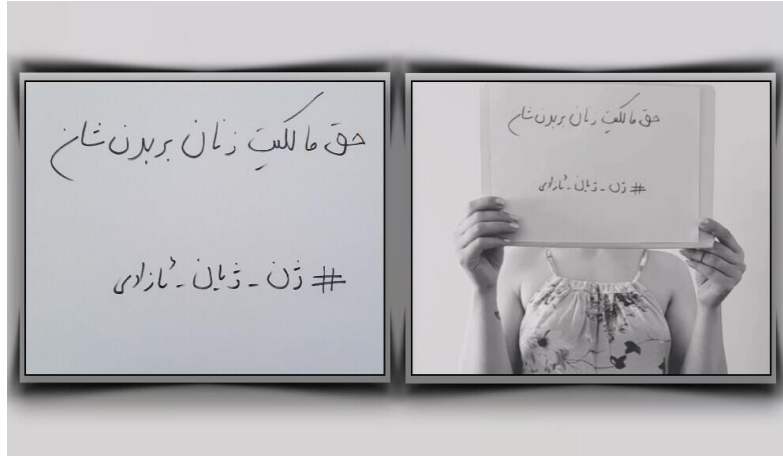 حق مالکیت زنان بر بدن شان
# ژن - ژیان - ئازادی
حق مالکیت زنان بر بدن شان
# ژن - ژیان - ئازادی